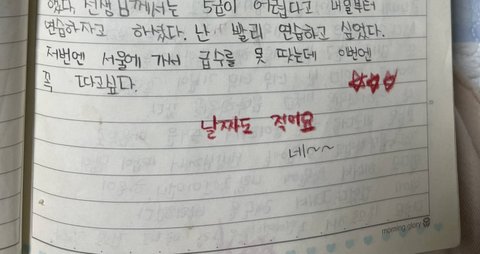 했다. 선생님께서는 5급이 어렵다고 내일부터
연습하자고 하셨다. 난 빨리 연습하고 싶었다.
저번엔 서울에 가서 급수를 못 땄는데 이번엔
꼭 따고싶다.
날짜도 적어요
네~~
morning glory